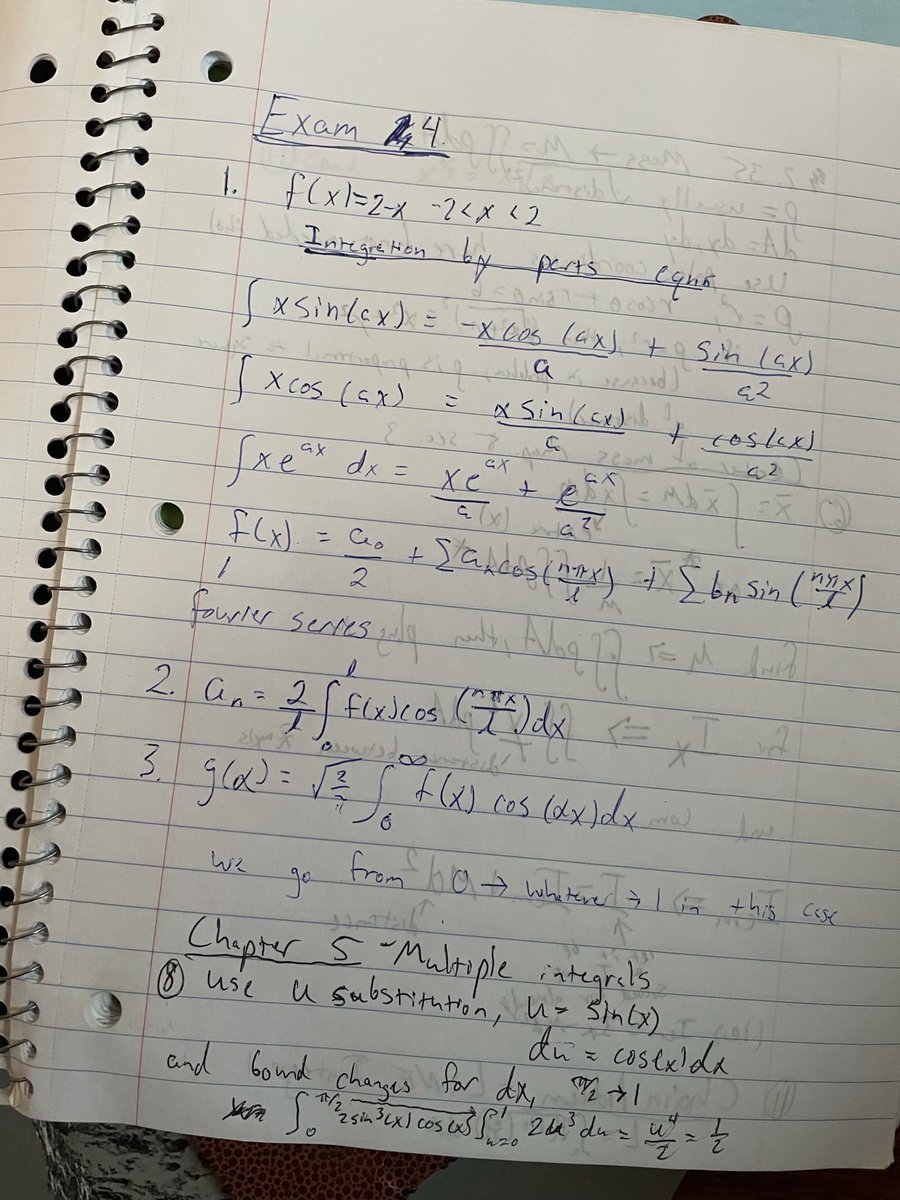 Exam 4.
1. f(x)=2-x -2<x<2
Integration by parts eqns
∫ x sin(ax) = -x cos(ax)/a + sin(ax)/a2
∫ x cos(ax) = x sin(ax)/a + cos(ax)/a2
∫ x e^ax dx = x e^ax/a + e^ax/a2
f(x) = a0/2 + Σ an cos(nπx/l) + Σ bn sin(nπx/l)
fourier series
2. an = 2/l ∫0^l f(x) cos (nπx/l) dx
3. g(α) = √2/π ∫0^∞ f(x) cos (αx) dx
we go from 0 → whatever → 1 in this case
Chapter 5 - Multiple integrals
⑧ use u substitution, u= sin(x)
du = cos(x) dx
and bound changes for dx, π/2 → 1
∫0^π/2 2sin³(x) cos(x) ∫u=0^1 2u³ du = u⁴/2 = 1/2